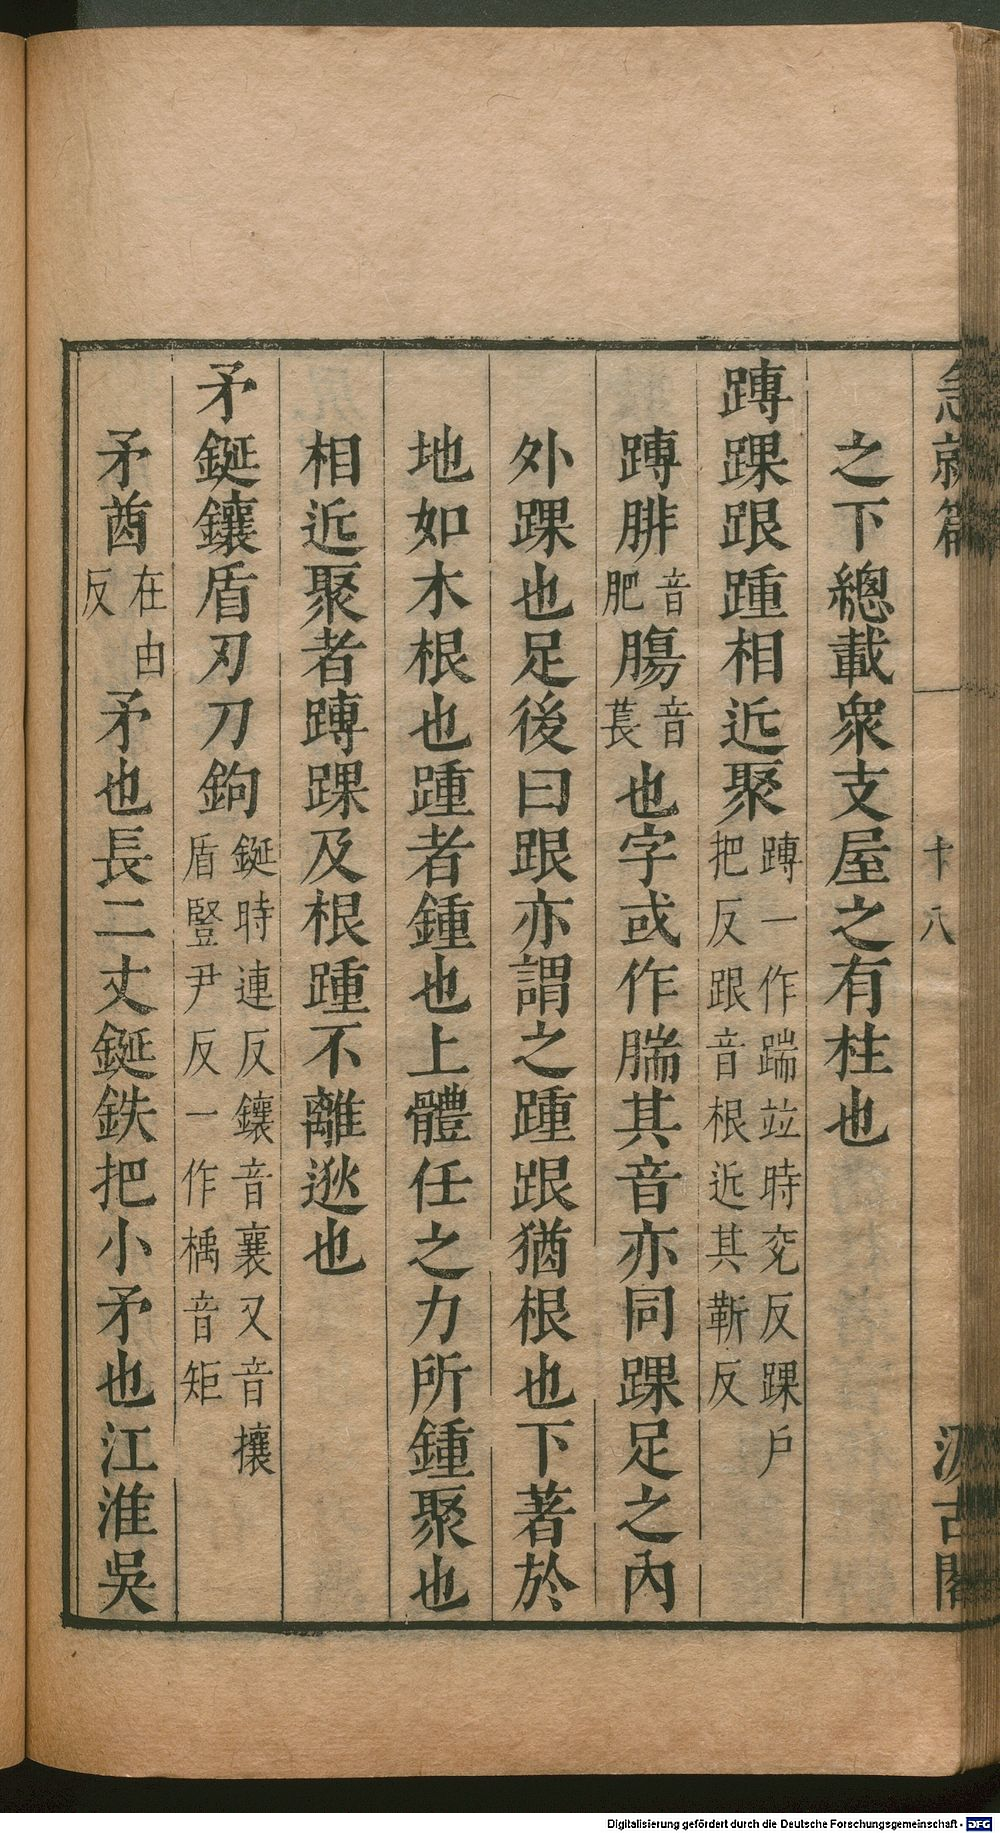 急就篇 十八 汲古閣
之下總載衆支屋之有柱也
䏝踝跟踵相近聚 䏝一作踹竝時兖反踝戶
把反跟音根近其靳反
䏝腓 音肥 腸 音萇 也字或作腨其音亦同踝足之內
外踝也足後曰跟亦謂之踵跟猶根也下著於
地如木根也踵者鍾也上體任之力所鍾聚也
相近聚者䏝踝及根踵不離逖也
矛鋋鑲盾刃刀鉤 鋋時連反鑲音襄又音攘
盾豎尹反一作楀音矩
矛酋 在由反 矛也長二丈鋋鉄把小矛也江淮吳
Digitalisierung gefördert durch die Deutsche Forschungsgemeinschaft - DFG